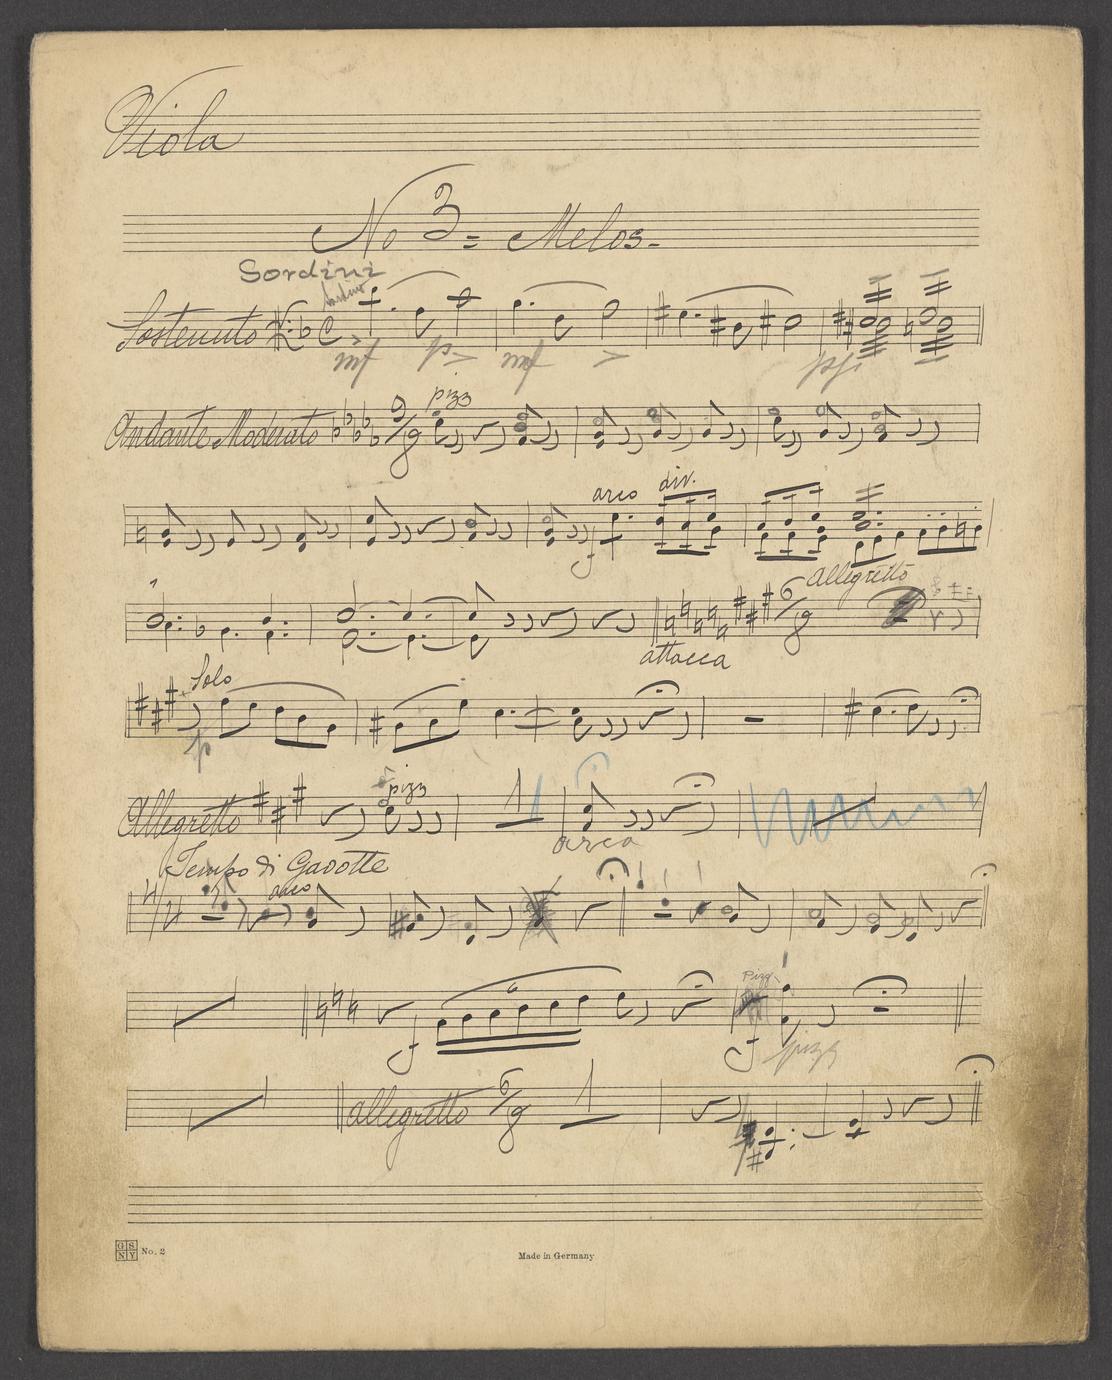 Viola
No 3 = Melos -
Sordini
Sordino
Sostenuto
mf p mf pp
Andante Moderato 9/8 pizz
arco div.
Allegretto
6/8
attacca
Solo
p
Allegretto pizz
1 1
arco
Tempo di Gavotte
arco
6
pizz
f f pizz
allegretto 6/8 1
GS NY No. 2
Made in Germany